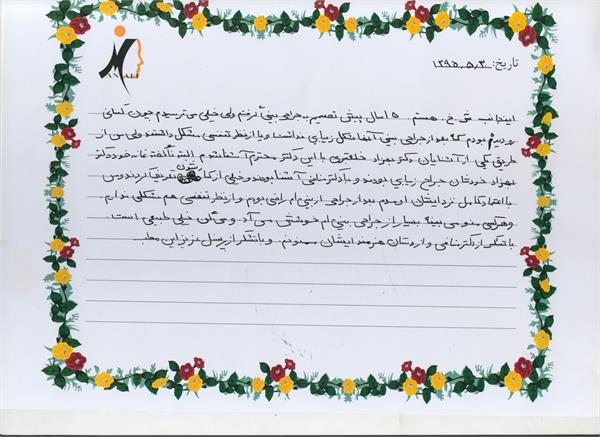 MANAFI
تاریخ: ۱۳۹۵.۵.۳
اینجانب ش.خ. هستم. ۵ سال پیش تصمیم به جراحی بینی گرفتم ولی خیلی می ترسیدم چون کسانی
رو دیده بودم که بعد از جراحی بینی آنها شکل زیبایی نداشت و یا از نظر تنفسی مشکل داشتند ولی من از
طریق یکی از آشنایان دکتر بهزاد با این دکتر محترم آشنا شدم البته ناگفته نماند خود دکتر
بهزاد خودشان جراح زیبایی بودند و با دکتر منافی آشنا بودند و خیلی از کارشون تعریف کردند و من
با اعتماد کامل نزد ایشان اومدم بعد از جراحی از بینی ام راضی بودم و از نظر تنفسی هم مشکلی ندارم
و هرکسی منو می بینه بسیار از جراحی بینی ام خوشش می آد و می گن خیلی طبیعی است.
با تشکر از دکتر منافی و از دستان هنرمند ایشان ممنونم. و با تشکر از پرسنل عزیز این مطب